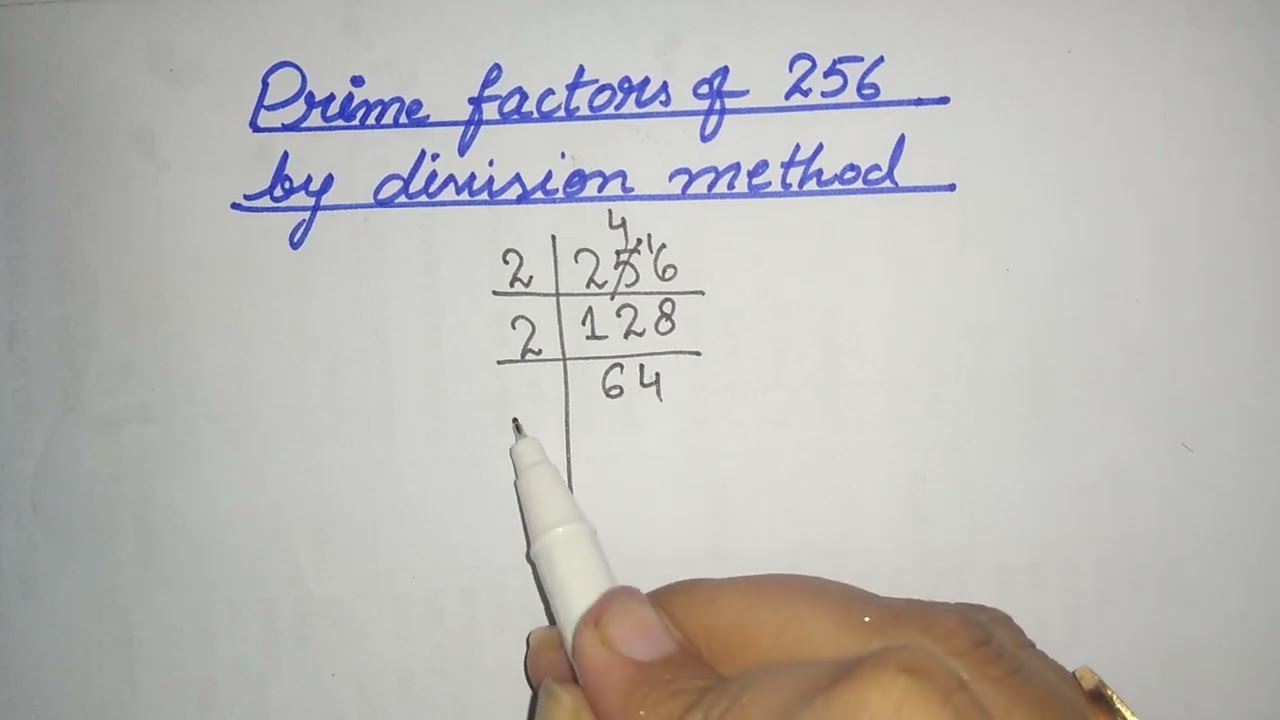 Prime factors of 256
by division method
4 1
2 256
2 128
64